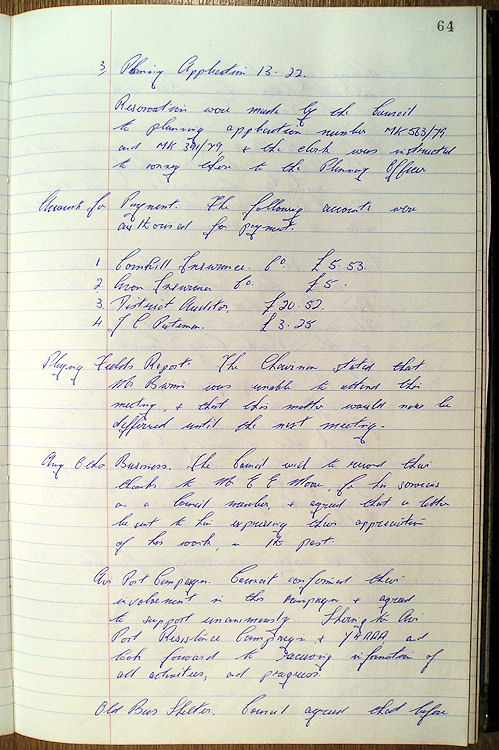 64
3, Planning Application 13-22.
Reservation were made by the Council
to planning application number MK 563/79
and MK 391/79, + the clerk was instructed
to convey these to the Planning Officer
Accounts for Payment. The following accounts were
authorised for payment.
1 Cornhill Insurance. Co. £5.53.
2 Avon Insurance Co. £5.
3. District Auditor. £20.52.
4 J C Pateman. £3.25
Playing Fields Report. The Chairman stated that
Mr was unable to attend this
meeting, + that this matter would now be
differred until the next meeting.
Any Other Business. The Council wish to record their
thanks to Mr E E Moore, for his services
as a Council member, + agreed that a letter
be sent to him expressing their appreciation
of his work, in the past.
Air Port Campaign. Council confirmed their
involvement in this campaign + agreed
to support unanimously the Air
Port Resistance Campaign + and
look forward to receiving information of
all activities, and progress.
Old Bus Shelter. Council agreed that before